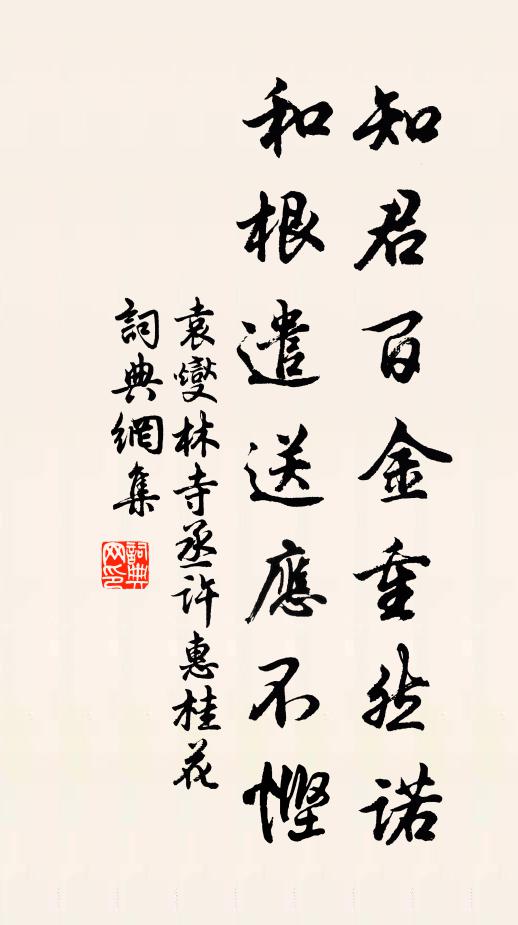 知君百金重然諾
和根遣送應不慳
袁燮林寺丞許惠桂花
詞典網集
詞典网印